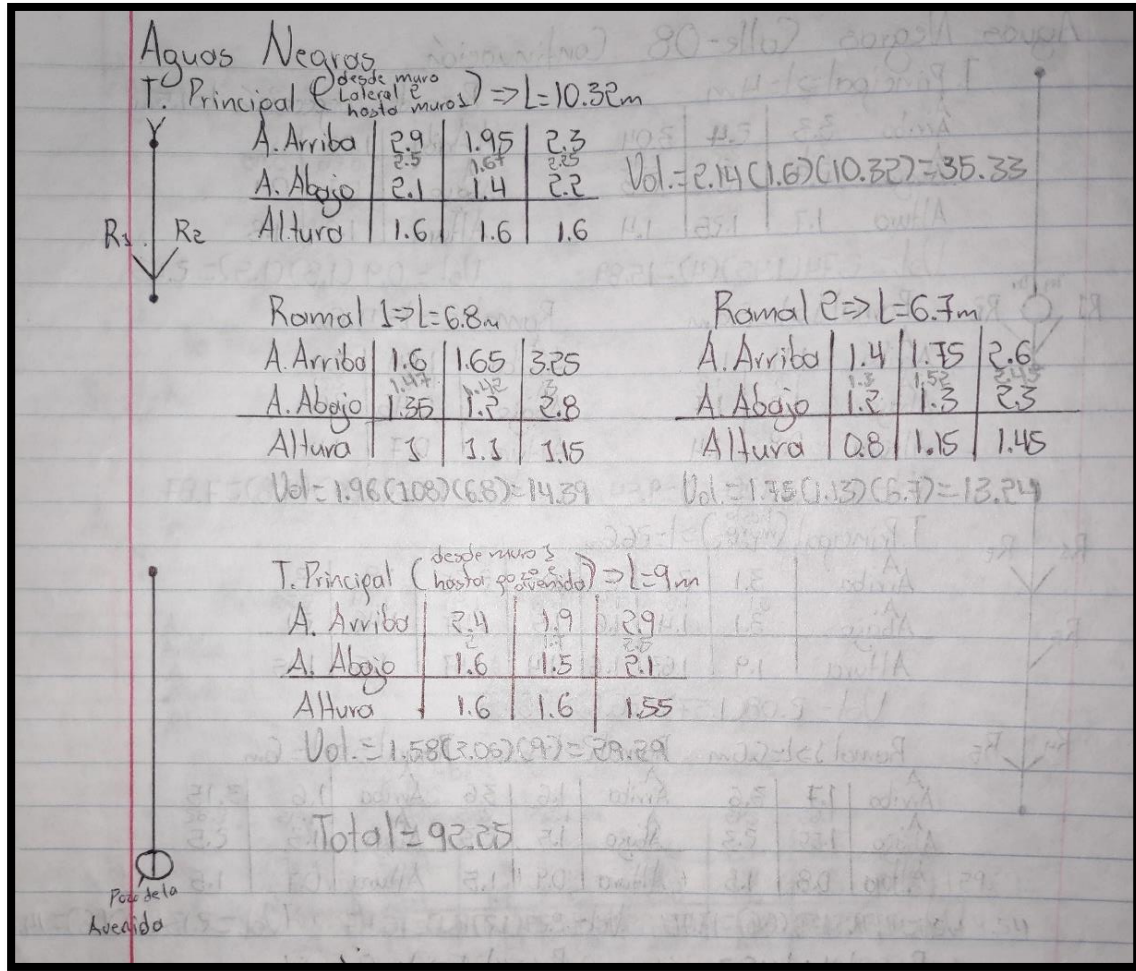 Aguas Negras
T. Principal (desde muro Lateral 2 hasta muro 1) => L=10.32m
A. Arriba | 2.9 | 1.95 | 2.3
2.5 1.67 2.25
A. Abajo | 2.1 | 1.4 | 2.2
Altura | 1.6 | 1.6 | 1.6
Vol.=2.14(1.6)(10.32)=35.33
R1 R2
Ramal 1=>L=6.8m
A. Arriba | 1.6 | 1.65 | 3.25
1.47 1.42 3
A. Abajo | 1.35 | 1.2 | 2.8
Altura | 1 | 1.1 | 1.15
Vol=1.96(1.08)(6.8)=14.39
Ramal 2=>L=6.7m
A. Arriba | 1.4 | 1.75 | 2.6
1.3 1.52 2.45
A. Abajo | 1.2 | 1.3 | 2.3
Altura | 0.8 | 1.15 | 1.45
Vol=1.75(1.13)(6.7)=13.24
T. Principal (desde muro 1 hasta pozo avenida) => L=9m
A. Arriba | 2.4 | 1.9 | 2.9
2 1.7 2.5
A. Abajo | 1.6 | 1.5 | 2.1
Altura | 1.6 | 1.6 | 1.55
Vol.=1.58(2.06)(9)=29.29
Total=92.25
Pozo de la
Avenida